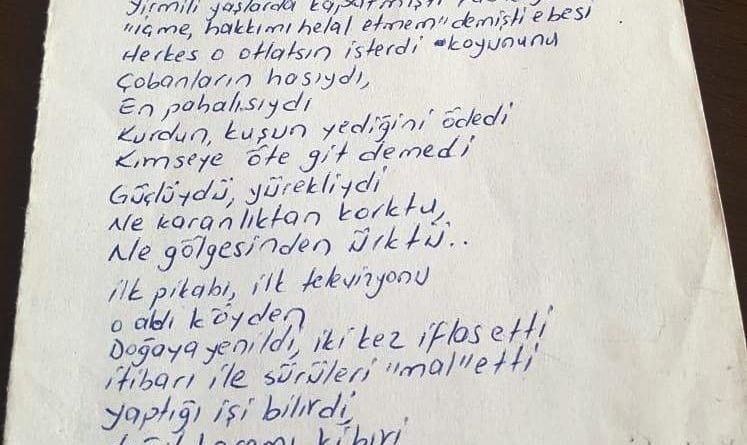 Yirmili yaşlarda
"içme, hakkımı helal etmem" demişti ebesi
Herkes o otlatsın isterdi koyununu
Çobanların hasıydı,
En pahalısıydı
Kurdun, kuşun yediğini ödedi
Kimseye öte git demedi
Güçlüydü, yürekliydi
Ne karanlıktan korktu,
Ne gölgesinden ürktü..
ilk pikabı, ilk televizyonu
o aldı köyden
Doğaya yenildi, iki kez iflas etti
itibarı ile sürüleri "mal" etti
yaptığı işi bilirdi,
kibiri